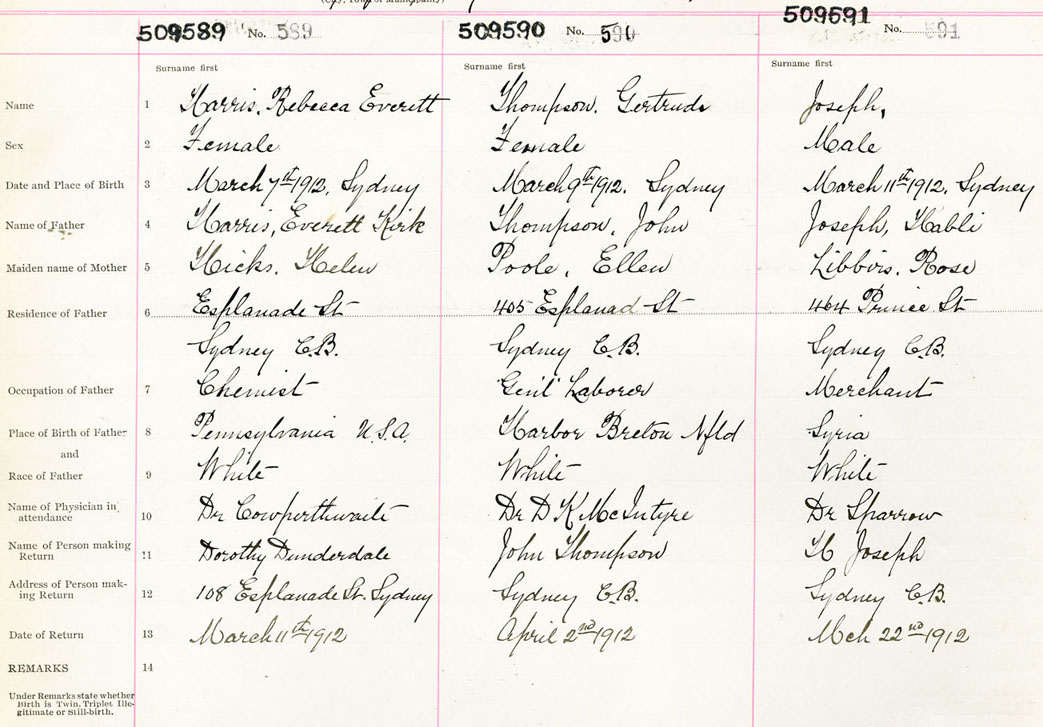 509589 No. 589 509590 No. 590 509591 No. 591
Surname first Surname first Surname first
Name 1 Harris, Rebecca Everett Thompson, Gertrude Joseph,
Sex 2 Female Female Male
Date and Place of Birth 3 March 7th 1912, Sydney March 9th 1912. Sydney March 11th 1912, Sydney
Name of Father 4 Harris, Everett Kirk Thompson, John Joseph, Habli
Maiden name of Mother 5 Hicks, Helen Poole, Ellen Libbirs, Rose
Residence of Father 6 Esplanade St 405 Esplanad St 464 Prince St
Sydney C.B. Sydney C.B. Sydney C.B.
Occupation of Father 7 Chemist Gen'l Laborer Merchant
Place of Birth of Father 8 Pennsylvania U.S.A. Harbor Breton Nfld Syria
and
Race of Father 9 White White White
Name of Physician in attendance 10 Dr Cowperthwaite Dr D K McIntyre Dr Sparrow
Name of Person making Return 11 Dorothy Dunderdale John Thompson H Joseph
Address of Person mak-ing Return 12 108 Esplanade St. Sydney Sydney C.B. Sydney C.B.
Date of Return 13 March 11th 1912 April 2nd 1912 Mch 22nd 1912
REMARKS 14
Under Remarks state whether
Birth is Twin, Triplet Ille-
gitimate or Still-birth.